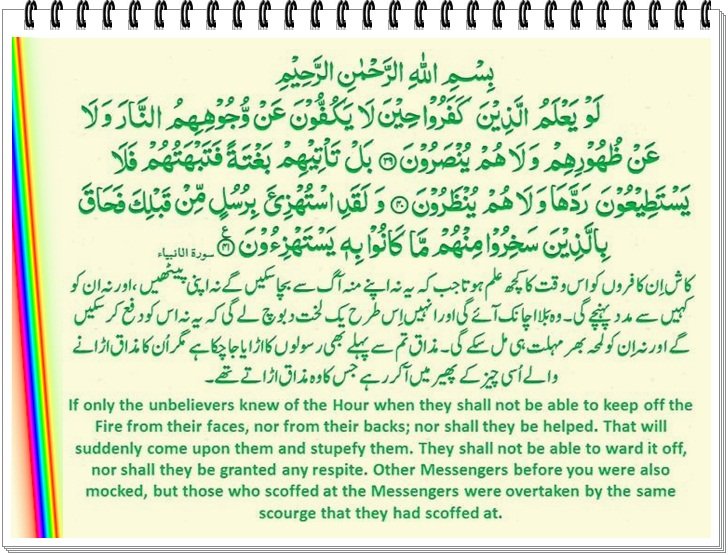 بِسْمِ اللهِ الرَّحْمٰنِ الرَّحِيْمِ
لَوْ يَعْلَمُ الَّذِيْنَ كَفَرُوْا حِيْنَ لَا يَكُفُّوْنَ عَنْ وُّجُوْهِهِمُ النَّارَ وَلَا
عَنْ ظُهُوْرِهِمْ وَلَا هُمْ يُنْصَرُوْنَ ۝۳۹ بَلْ تَاْتِيْهِمْ بَغْتَةً فَتَبْهَتُهُمْ فَلَا
يَسْتَطِيْعُوْنَ رَدَّهَا وَلَا هُمْ يُنْظَرُوْنَ ۝۴۰ وَ لَقَدِ اسْتُهْزِئَ بِرُسُلٍ مِّنْ قَبْلِكَ فَحَاقَ
بِالَّذِيْنَ سَخِرُوْا مِنْهُمْ مَّا كَانُوْا بِهٖ يَسْتَهْزِءُوْنَ ۝۴۱ ع سورة الانبياء
کاش اِن کافروں کو اس وقت کا کچھ علم ہوتا جب کہ یہ نہ اپنے منہ آگ سے بچا سکیں گے نہ اپنی پیٹھیں ، اور نہ ان کو
کہیں سے مدد پہنچے گی۔ وہ بلا اچانک آئے گی اور انہیں اِس طرح یک لخت دبوچ لے گی کہ یہ نہ اس کو دفع کر سکیں
گے اور نہ ان کو لمحہ بھر مہلت ہی مل سکے گی۔ مذاق تم سے پہلے بھی رسولوں کا اڑایا جا چکا ہے مگر اُن کا مذاق اڑانے
والے اُسی چیز کے پھیر میں آ کر رہے جس کا وہ مذاق اڑاتے تھے۔
If only the unbelievers knew of the Hour when they shall not be able to keep off the
Fire from their faces, nor from their backs; nor shall they be helped. That will
suddenly come upon them and stupefy them. They shall not be able to ward it off,
nor shall they be granted any respite. Other Messengers before you were also
mocked, but those who scoffed at the Messengers were overtaken by the same
scourge that they had scoffed at.